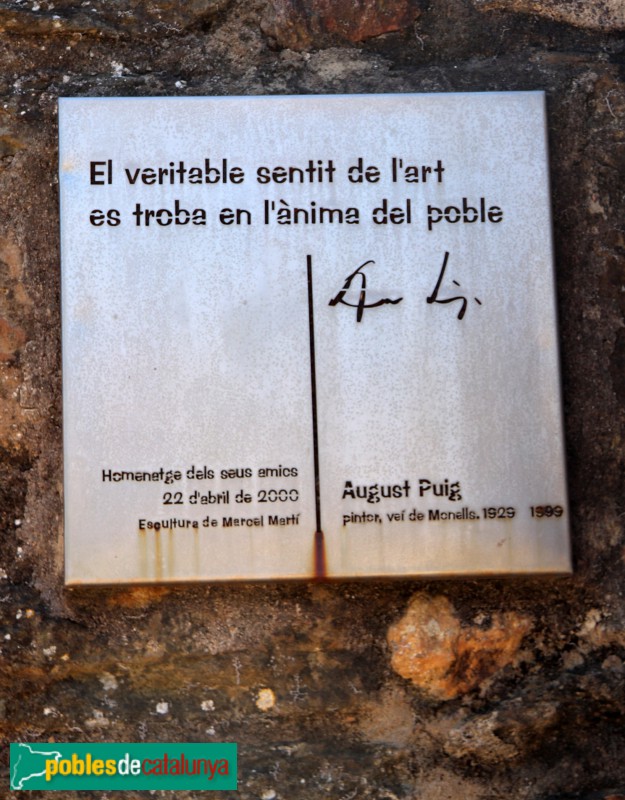 El veritable sentit de l'art
es troba en l'ànima del poble
Homenatge dels seus amics
22 d'abril de 2000
Escultura de Marcel Martí
August Puig
pintor, veí de Monells. 1929 1999
poblesdecatalunya